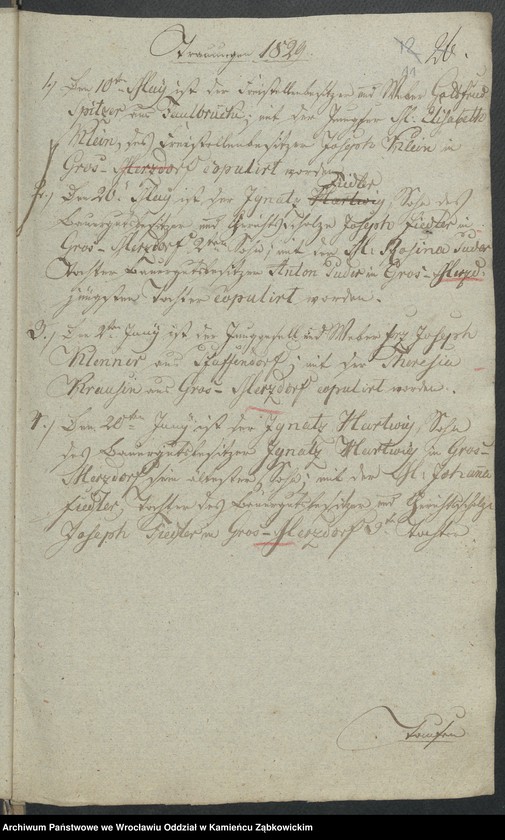 Trauungen 1829.
12 26.
11
1.) Den 10ten May ist der Freistellenbesitzer und Weber Gottfried
Spitzer aus Faulbrück; mit der Jungfer M. Elisabeth
Klein, des Freistellenbesitzer Joseph Klein in
Gros-Merzdorf copulirt worden.
Fiedler
2.) Den 26t May ist der Ignatz Hartwig, Sohn des
Bauergutsbesitzer und Gerichtsscholze Joseph Fiedler in
Gros-Merzdorf 2ten Sohn; mit der M. Rosina
Tochter Bauergutsbesitzer Anton in Gros-Merzd.
jüngsten Tochter copulirt worden.
3.) Den 2ten Juny ist der Junggesell und Weber Joseph
Klenner aus; mit der Theresia
Krausin aus Gros-Merzdorf copulirt worden.
4.) Den 20ten Juny ist der Ignatz Hartwig, Sohn
des Bauergutsbesitzer Ignatz Hartwig in Gros-
Merzdorf sein ältester Sohn; mit der M. Johanna
Fiedler, Tochter des Bauergutsbesitzer und Gerichtsscholze
Joseph Fiedler in Gros-Merzdorf Tochter
Taufen
Archiwum Państwowe we Wrocławiu Oddział w Kamieńcu Ząbkowickim